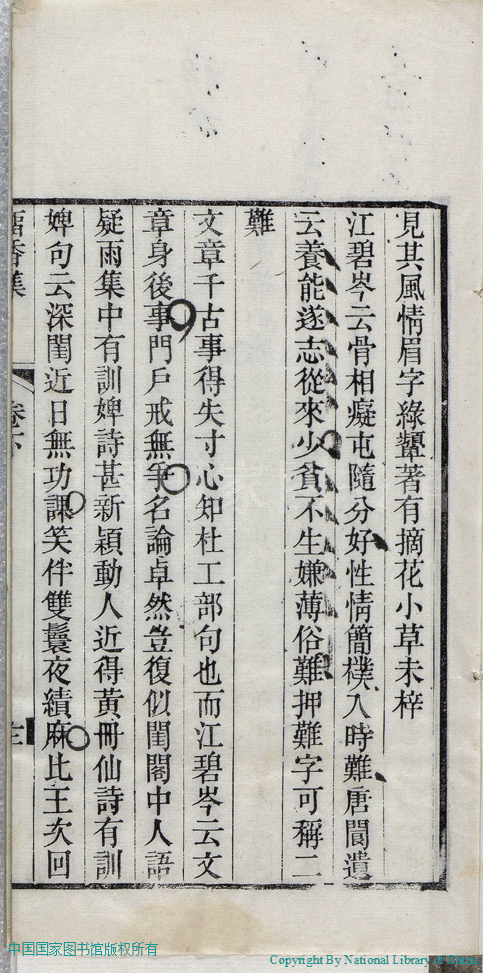 見其風情眉字綠顰著有摘花小草未梓
江碧岑云骨相癡屯隨分好性情簡樸入時難唐閬遺
云養能遂志從來少貧不生嫌薄俗難押難字可稱二
難
文章千古事得失寸心知杜工部句也而江碧岑云文
章身後事門戶戒無爭名論卓然豈復似閨閣中人語
疑雨集中有訓婢詩甚新穎動人近得黃冊仙詩有訓
婢句云深閨近日無功課笑伴雙鬟夜績麻比王次回
香集
卷下
中国国家图书馆版权所有
Copyright By National Library of China